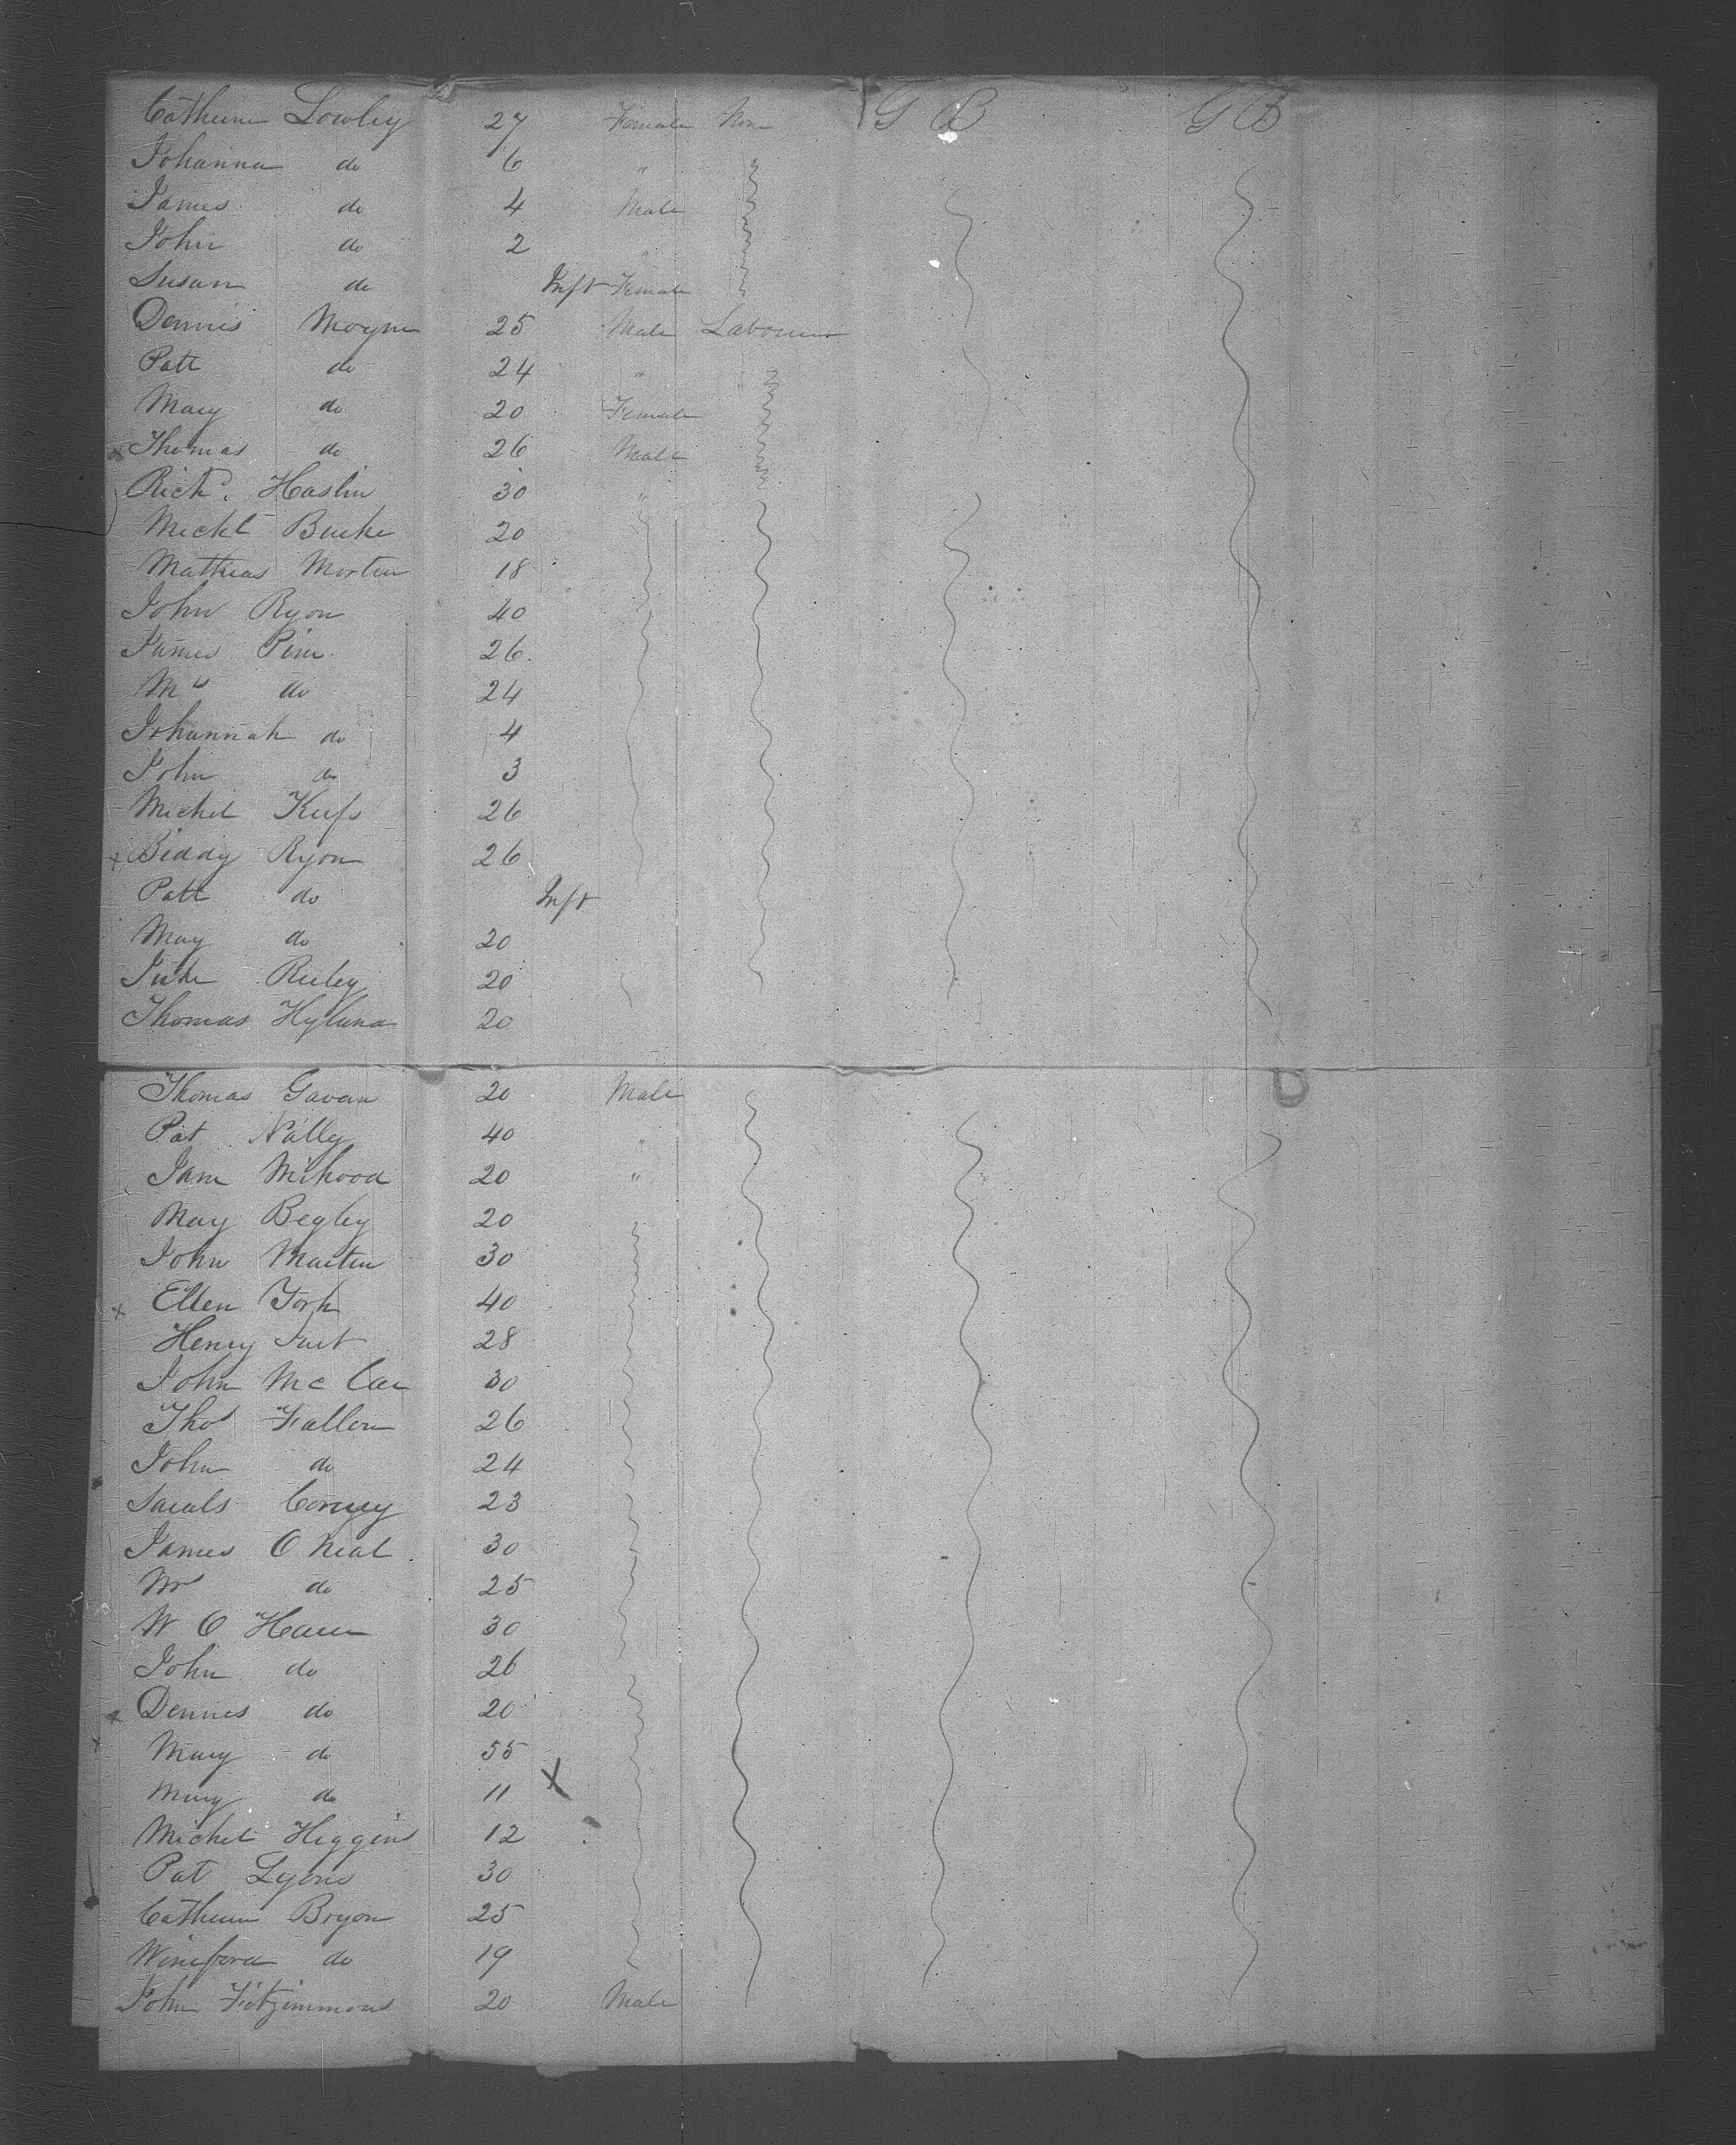 Catherine Lowley 27 Female Non G B G B
Johanna do 6 "
James do 4 Male
John do 2 "
Susan do Inft Female
Dennis Moyne 25 Male Labourer
Patt do 24 "
Mary do 20 Female
x Thomas do 26 Male
Richd. Haslin 30 "
Michl Burke 20
Mathias Morten 18
John Ryon 40
James Pim 26
Mrs do 24
Johannah do 4
John do 3
Michel 26
x Biddy Ryon 26
Patt do Inft
May do 20
Reiley 20
Thomas Hyland 20
Thomas Gaven 20 Male
Pat Nally 40 "
Jam 20 "
May Begley 20
John Martin 30
x Ellen York 40
Henry 28
John Mc 30
Thos Fallon 26
John do 24
23
James O Neal 30
do 25
W O 30
John do 26
x Dennis do 20
x Mary do 55
Mary do 11 X
Michel Higgins 12
Pat Lyons 30
Catherin Bryon 25
Wineford do 19
John Fitzimmons 20 Male